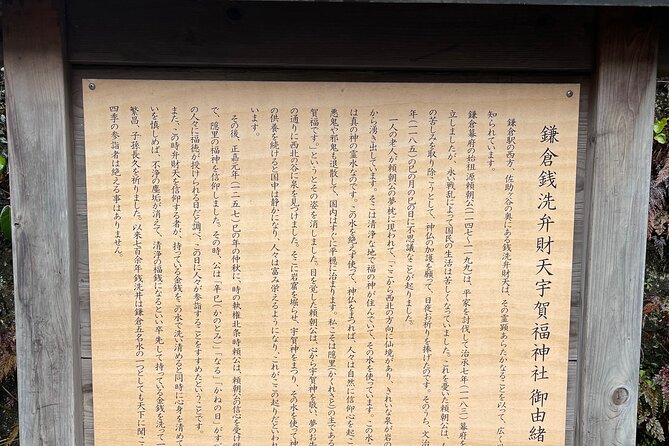 鎌倉銭洗弁財天宇賀福神社 御由緒
鎌倉駅の西方、佐助ヶ谷の奥にある銭洗弁財天は、その霊顕あらたかなることを以て、広く
知られています。
鎌倉幕府の始祖源頼朝公(一一四七~一一九九)は、平家を討伐して治承七年(一一八三)幕府を
立しましたが、永い戦乱によって国民の生活は苦しくなっていました。これを憂いた頼朝公は、
の苦しみを取り除こうとして、神仏の加護を願って、日夜お祈りを捧げたのです。そのうち、文治
年(一一八五)の巳の月の巳の日に不思議なことが起りました。
一人の老人が頼朝公の夢枕に現われて、「ここから西北の方向に仙境があり、きれいな泉が岩の
から湧き出しています。そこは清浄な地で福の神が住んでいて、その水を使っています。この水
は真の神の霊水なのです。この水を絶えず使って、神仏をまつれば、人々は自然に信仰心を起こ
悪鬼や邪鬼も退散して、国内はすぐに平穏に治まります。私こそは隠里(かくれざと)の主である
賀福です。」というとその姿を消しました。目を覚した頼朝公は、心から宇賀神を敬い、夢のお告
の通りに西北の谷に泉を見つけました。そこに岩窟を堀らせ、宇賀神をまつり、その水を使って神
の供養を続けると国中は静かになり、人々は富み栄えるようになり、これが、この起りだといわれ
います。
その後、正嘉元年(一二五七)巳の年の仲秋に、時の執権北条時頼公は、頼朝公の信心を受け継
で、隠里の福神を信仰しました。その時、公は「辛巳(かのとみ)」「なる「かねの日」がす
の人々に福徳が授けられる日だと調べ、この日に人々が参詣することをすすめたということです。
また、この時弁財天を信仰する者が、持っている金銭をこの水で洗い清めると同時に心身を清めて
いを慎しめば、不浄の塵垢が消えて、清浄の福銭になるといい卒先して持っている金銭を洗って一
繁昌、子孫長久を祈りました。以来七百余年銭洗井は鎌倉五名水の一つとしても天下に聞こ
四季の参詣者は絶える事はありません。